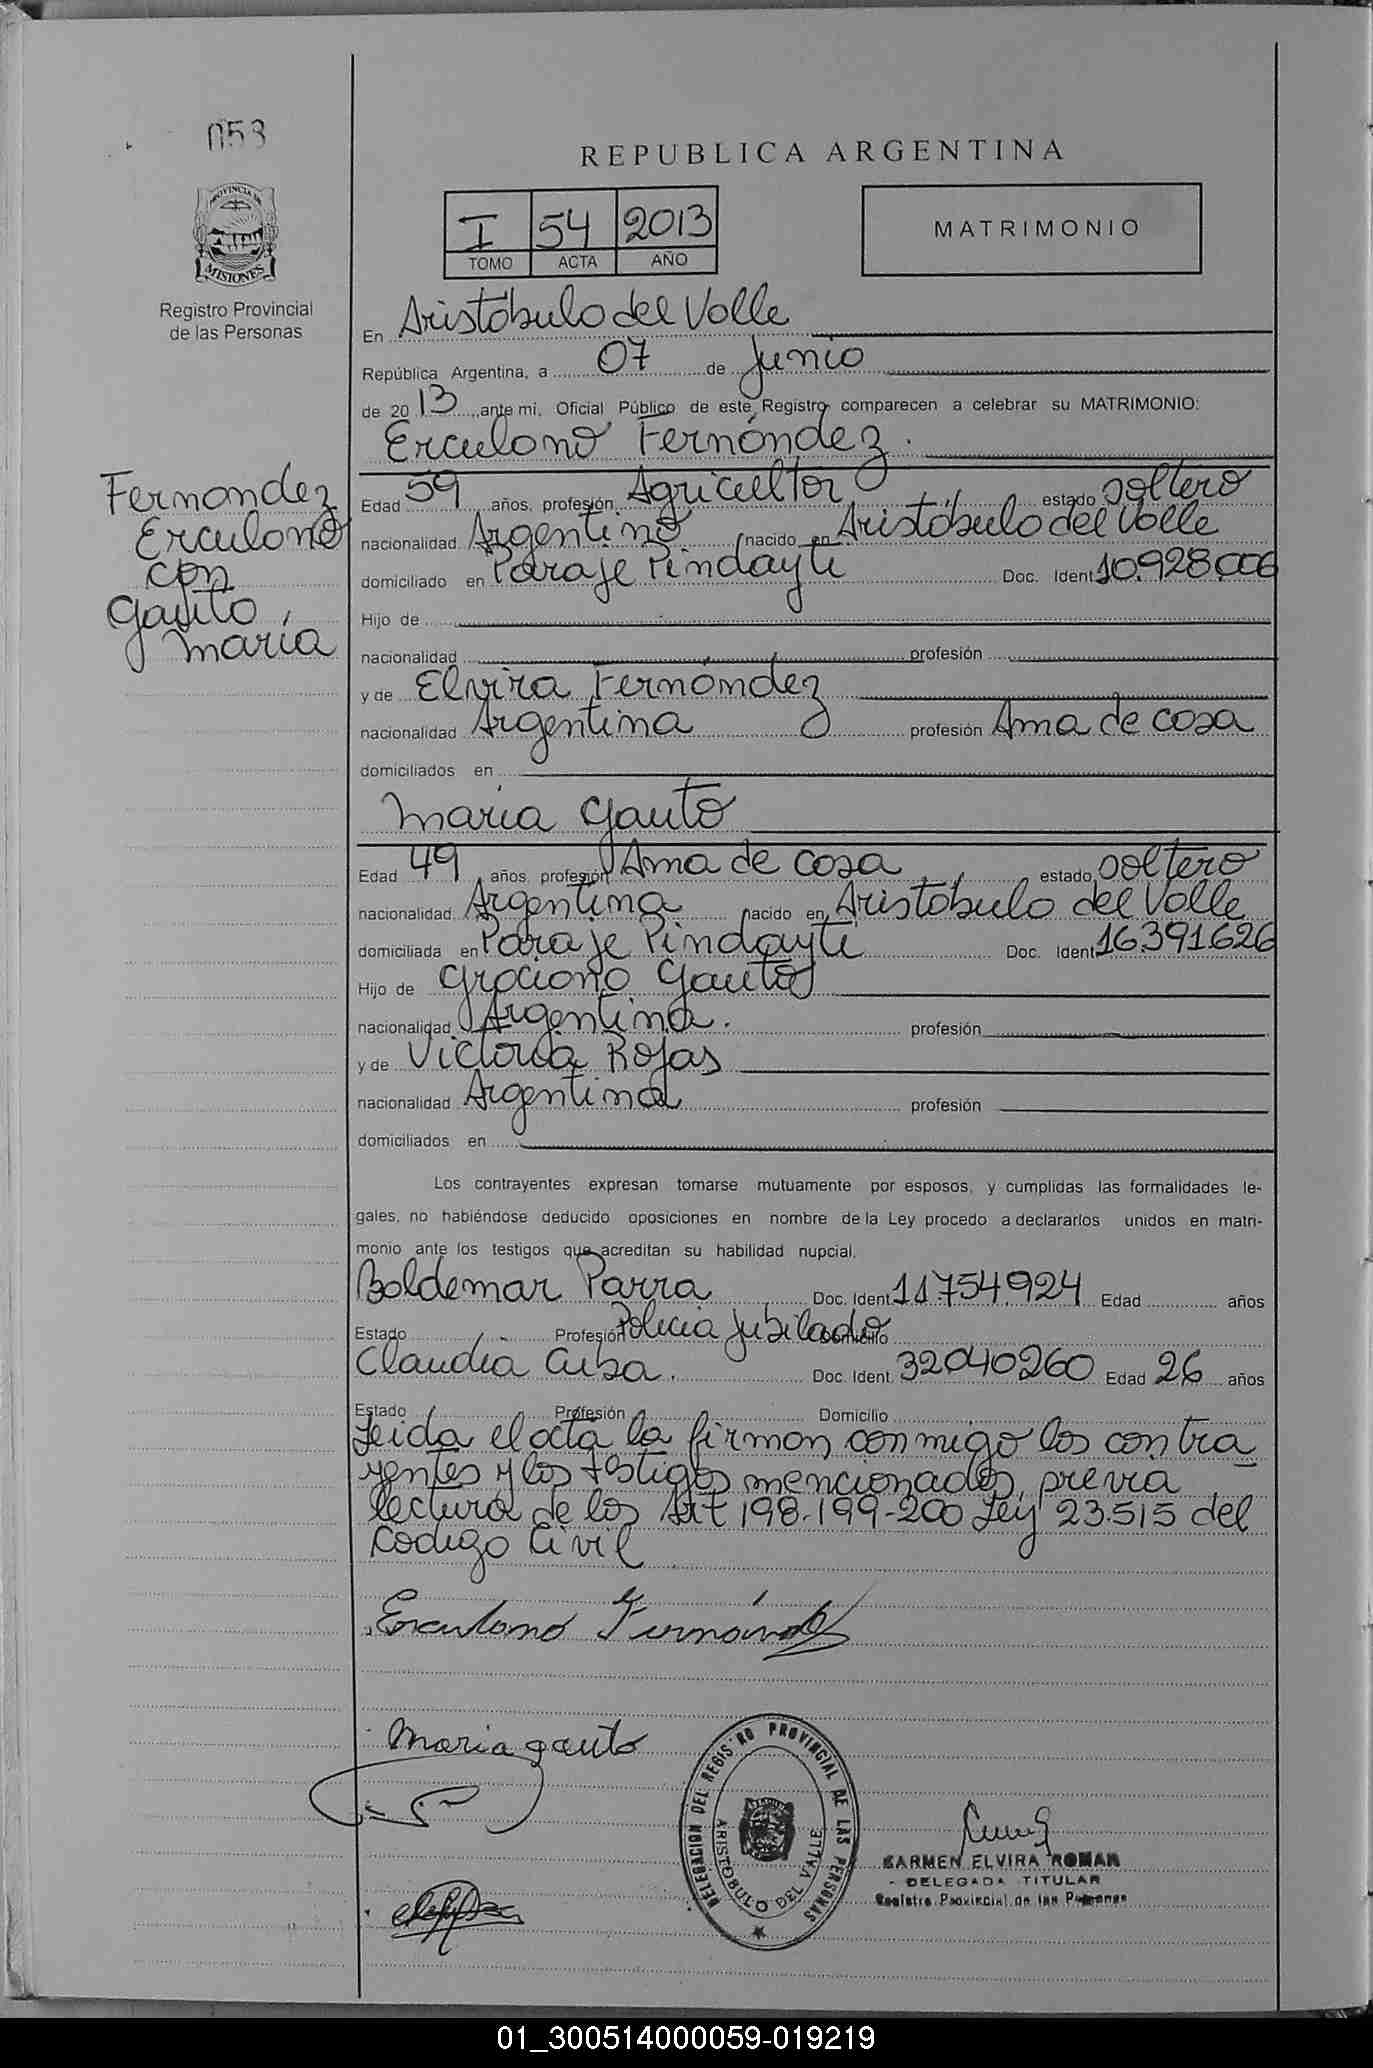 053
PROVINCIA DE
MISIONES
Registro Provincial
de las Personas
REPUBLICA ARGENTINA
I 54 2013
TOMO ACTA AÑO
MATRIMONIO
En Aristóbulo del Valle
República Argentina, a 07 de Junio
de 2013, ante mi, Oficial Público de este Registro comparecen a celebrar su MATRIMONIO:
Erculano Fernández.
Fernandez
Erculano
con
Gauto
María
Edad 59 años, profesión Agricultor estado soltero
nacionalidad Argentino nacido en Aristóbulo del Valle
domiciliado en Paraje Pindayti Doc. Ident 10.928.006
Hijo de
nacionalidad profesión
y de Elvira Fernández
nacionalidad Argentina profesión Ama de casa
domiciliados en
María Gauto
Edad 49 años, profesión Ama de casa estado soltero
nacionalidad Argentina nacido en Aristóbulo del Valle
domiciliada en Paraje Pindayti Doc. Ident 16391626
Hijo de Graciano Gauto
nacionalidad Argentina. profesión
y de Victoria Rojas
nacionalidad Argentina profesión
domiciliados en
Los contrayentes expresan tomarse mutuamente por esposos, y cumplidas las formalidades le-
gales, no habiéndose deducido oposiciones en nombre de la Ley procedo a declararlos unidos en matri-
monio ante los testigos que acreditan su habilidad nupcial.
Boldemar Parra Doc. Ident 11754924 Edad años
Estado Profesión Policia Jubilado Domicilio
Claudia Doc. Ident. 32040260 Edad 26 años
Estado Profesión Domicilio
Leida el acta la firman conmigo los contra
yentes y los testigos mencionados, previa
lectura de los Art 198-199-200 Ley 23.515 del
Codigo Civil
Erculano Fernández
Maria gauto
DELEGACION DEL REGISTRO PROVINCIAL DE LAS PERSONAS
ARISTOBULO DEL VALLE
CARMEN ELVIRA ROMAN
DELEGADA TITULAR
Registro Provincial de las Personas
01_300514000059-019219